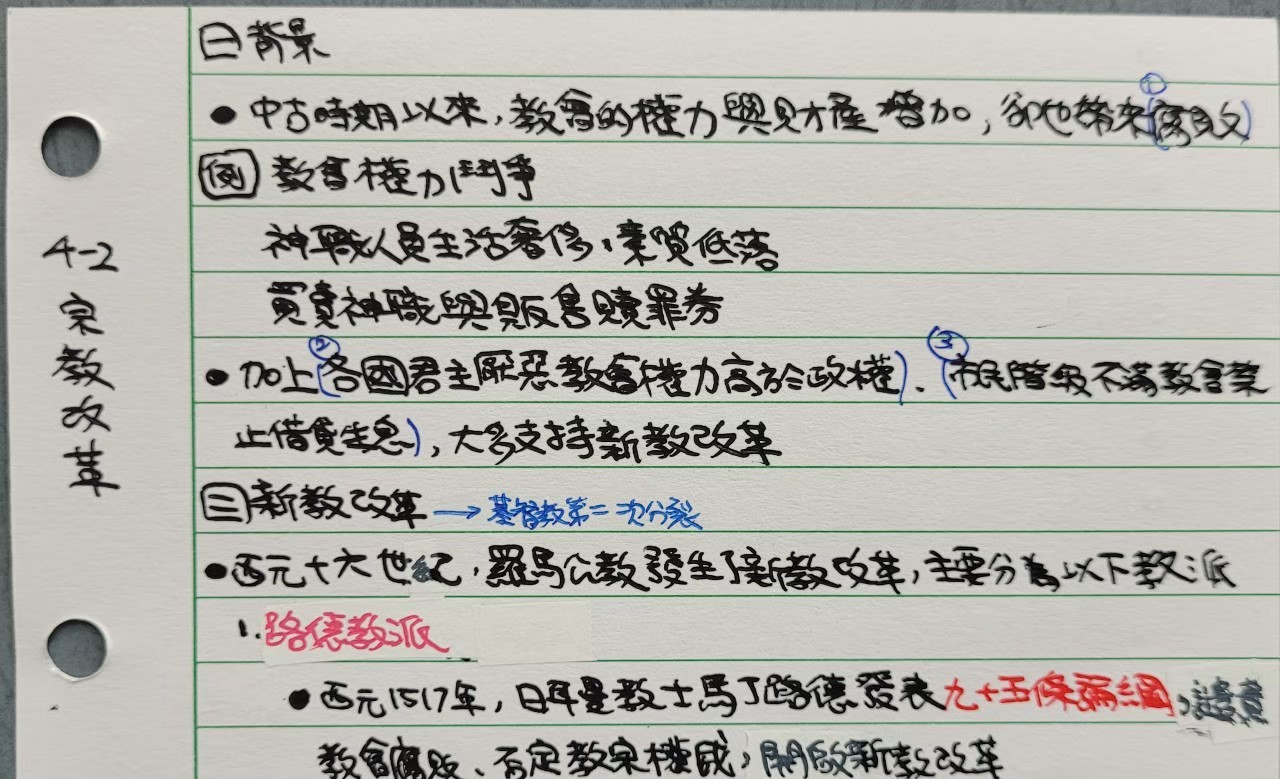 4-2 宗教改革
㊀背景
●中古時期以來,教會的權力與財產增加,卻也帶來①(腐敗)
例 教會權力鬥爭
神職人員生活奢侈,素質低落
買賣神職與販售贖罪券
●加上②(各國君主厭惡教會權力高於政權)、③(市民階級不滿教會禁
止借貸生息),大多支持新教改革
㊂新教改革→基督教第二次分裂
●西元十六世紀,羅馬公教發生了新教改革,主要分為以下教派
1.路德教派
●西元1517年,日耳曼教士馬丁路德發表九十五條論綱,譴責
教會腐敗、否定教宗權威,開啟新教改革